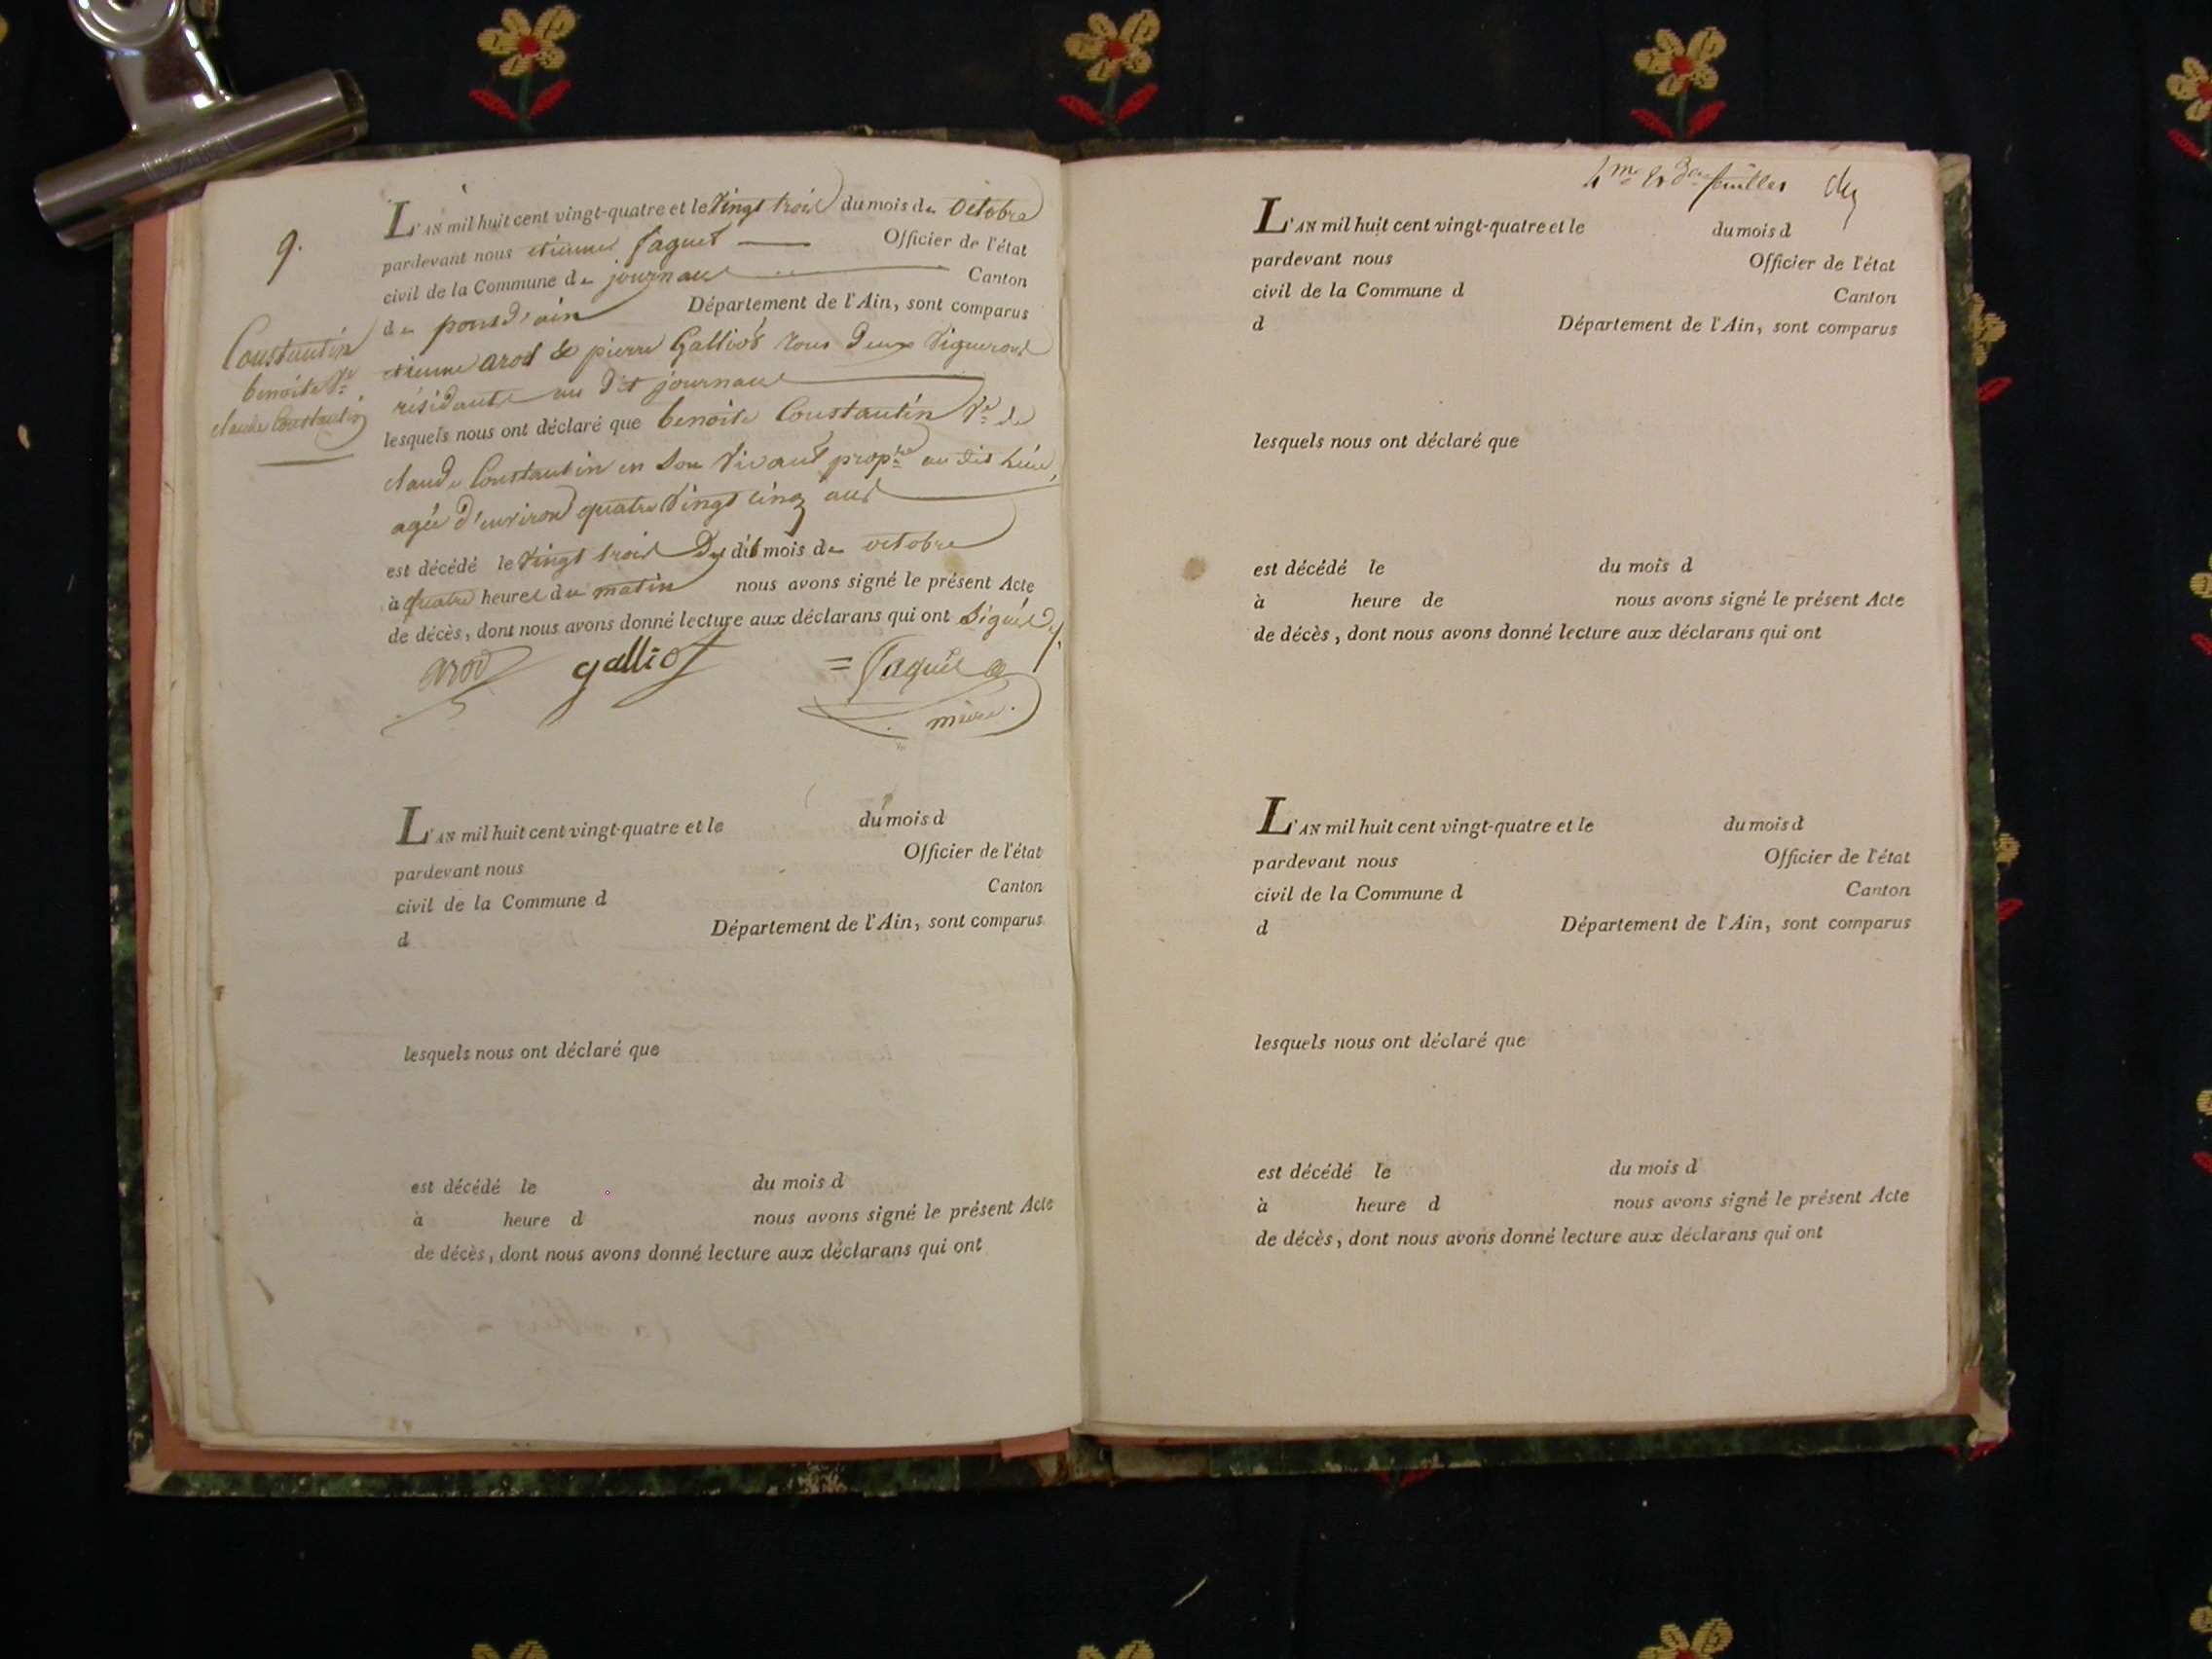 9.
L'AN mil huit cent vingt-quatre et le vingt trois du mois de octobre
pardevant nous etienne faguet Officier de l'état
civil de la Commune de journans Canton
de pontd'ain Département de l'Ain, sont comparus
etienne arod & pierre Galliot tous deux vignerons
résidants au dit journans
lesquels nous ont déclaré que benoite Constantin Ve de
claude Constantin en son vivant propre au dit lieu,
agée d'environ quatre vingt cinq ans
est décédé le vingt trois du dit mois de octobre
à quatre heures du matin nous avons signé le présent Acte
de décès, dont nous avons donné lecture aux déclarans qui ont signés
Constantin
benoite Ve
claude Constantin
arod galliot = faguet
maire.
L'AN mil huit cent vingt-quatre et le du mois d
pardevant nous Officier de l'état
civil de la Commune d Canton
d Département de l'Ain, sont comparus
lesquels nous ont déclaré que
est décédé le du mois d
à heure d nous avons signé le présent Acte
de décès, dont nous avons donné lecture aux déclarans qui ont
4me & feuilles
L'AN mil huit cent vingt-quatre et le du mois d
pardevant nous Officier de l'état
civil de la Commune d Canton
d Département de l'Ain, sont comparus
lesquels nous ont déclaré que
est décédé le du mois d
à heure de nous avons signé le présent Acte
de décès, dont nous avons donné lecture aux déclarans qui ont
L'AN mil huit cent vingt-quatre et le du mois d
pardevant nous Officier de l'état
civil de la Commune d Canton
d Département de l'Ain, sont comparus
lesquels nous ont déclaré que
est décédé le du mois d
à heure d nous avons signé le présent Acte
de décès, dont nous avons donné lecture aux déclarans qui ont